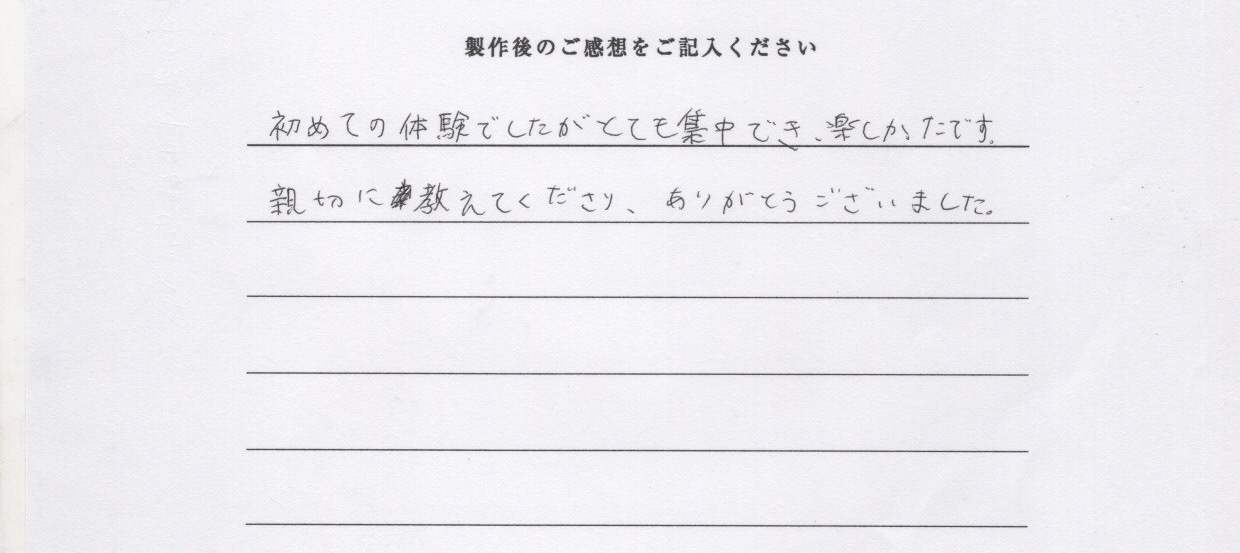 製作後のご感想をご記入ください
初めての体験でしたがとても集中でき、楽しかったです。
親切に教えてくださり、ありがとうございました。